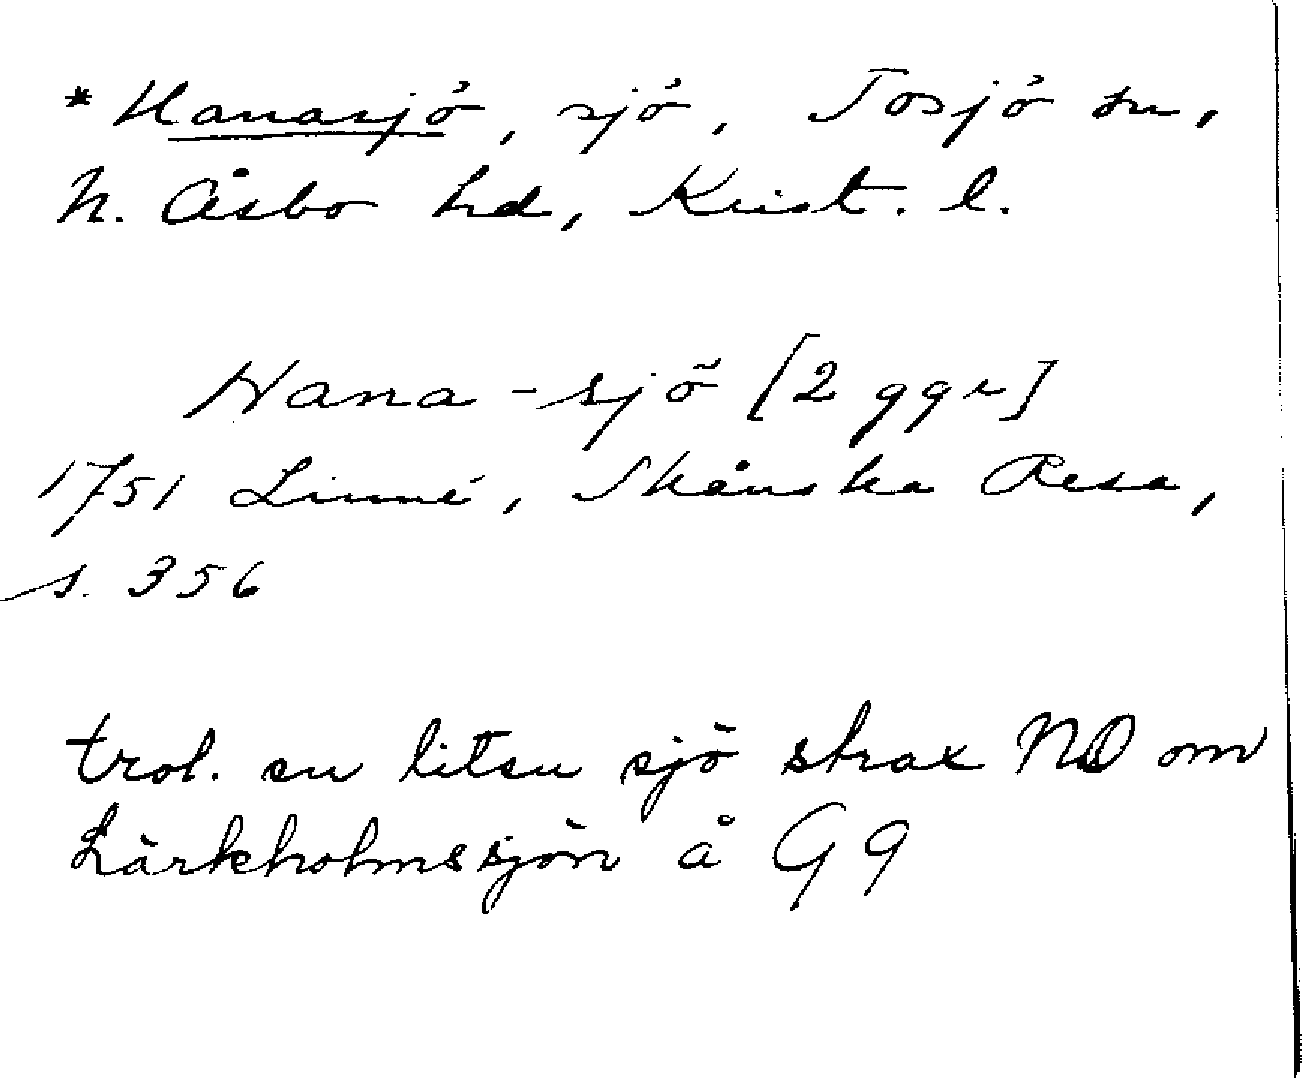 * Hanasjö, sjö, Tosjö sn,
N. Åsbo hd, Krist. l.
Hana-sjö [2 ggr]
1751 Linné, Skånska Resa,
s. 356
trol. en liten sjö strax NO om
Lärkholmssjön å G 9